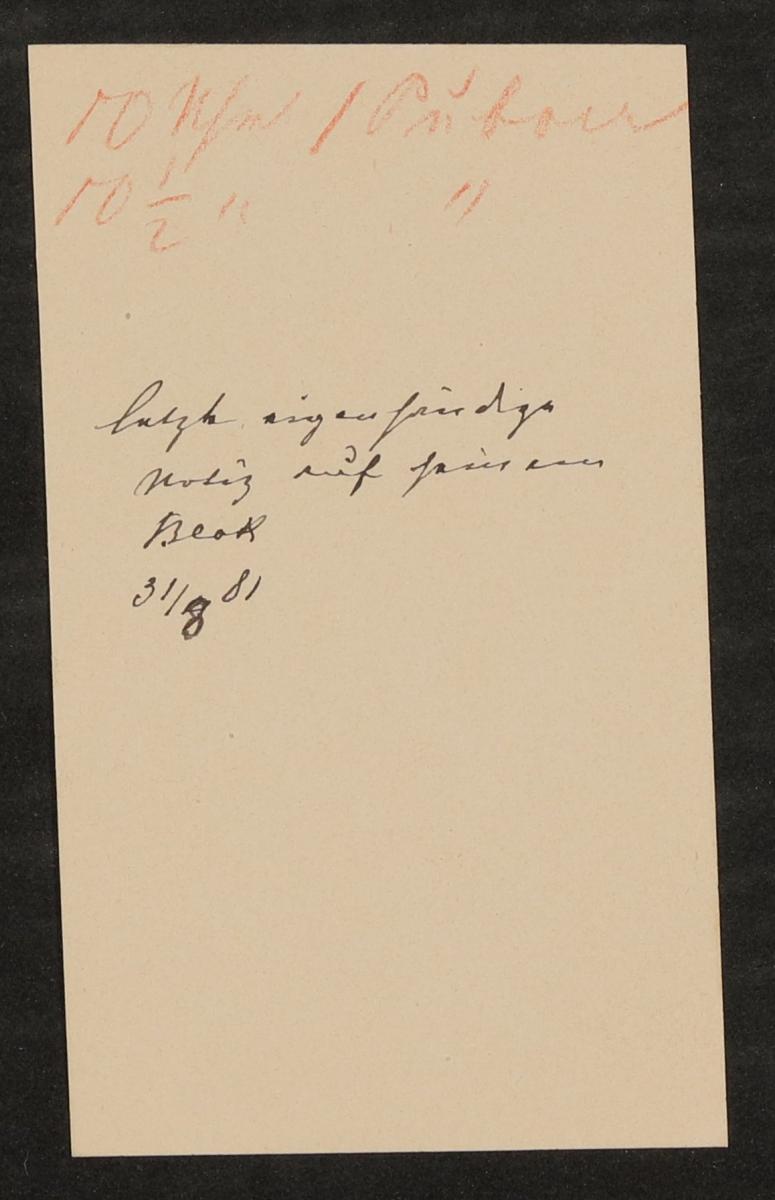 10 Uhr /
10 1/2 " "
letzte eigenhändige
Notiz auf seinem
Block
31/8 81